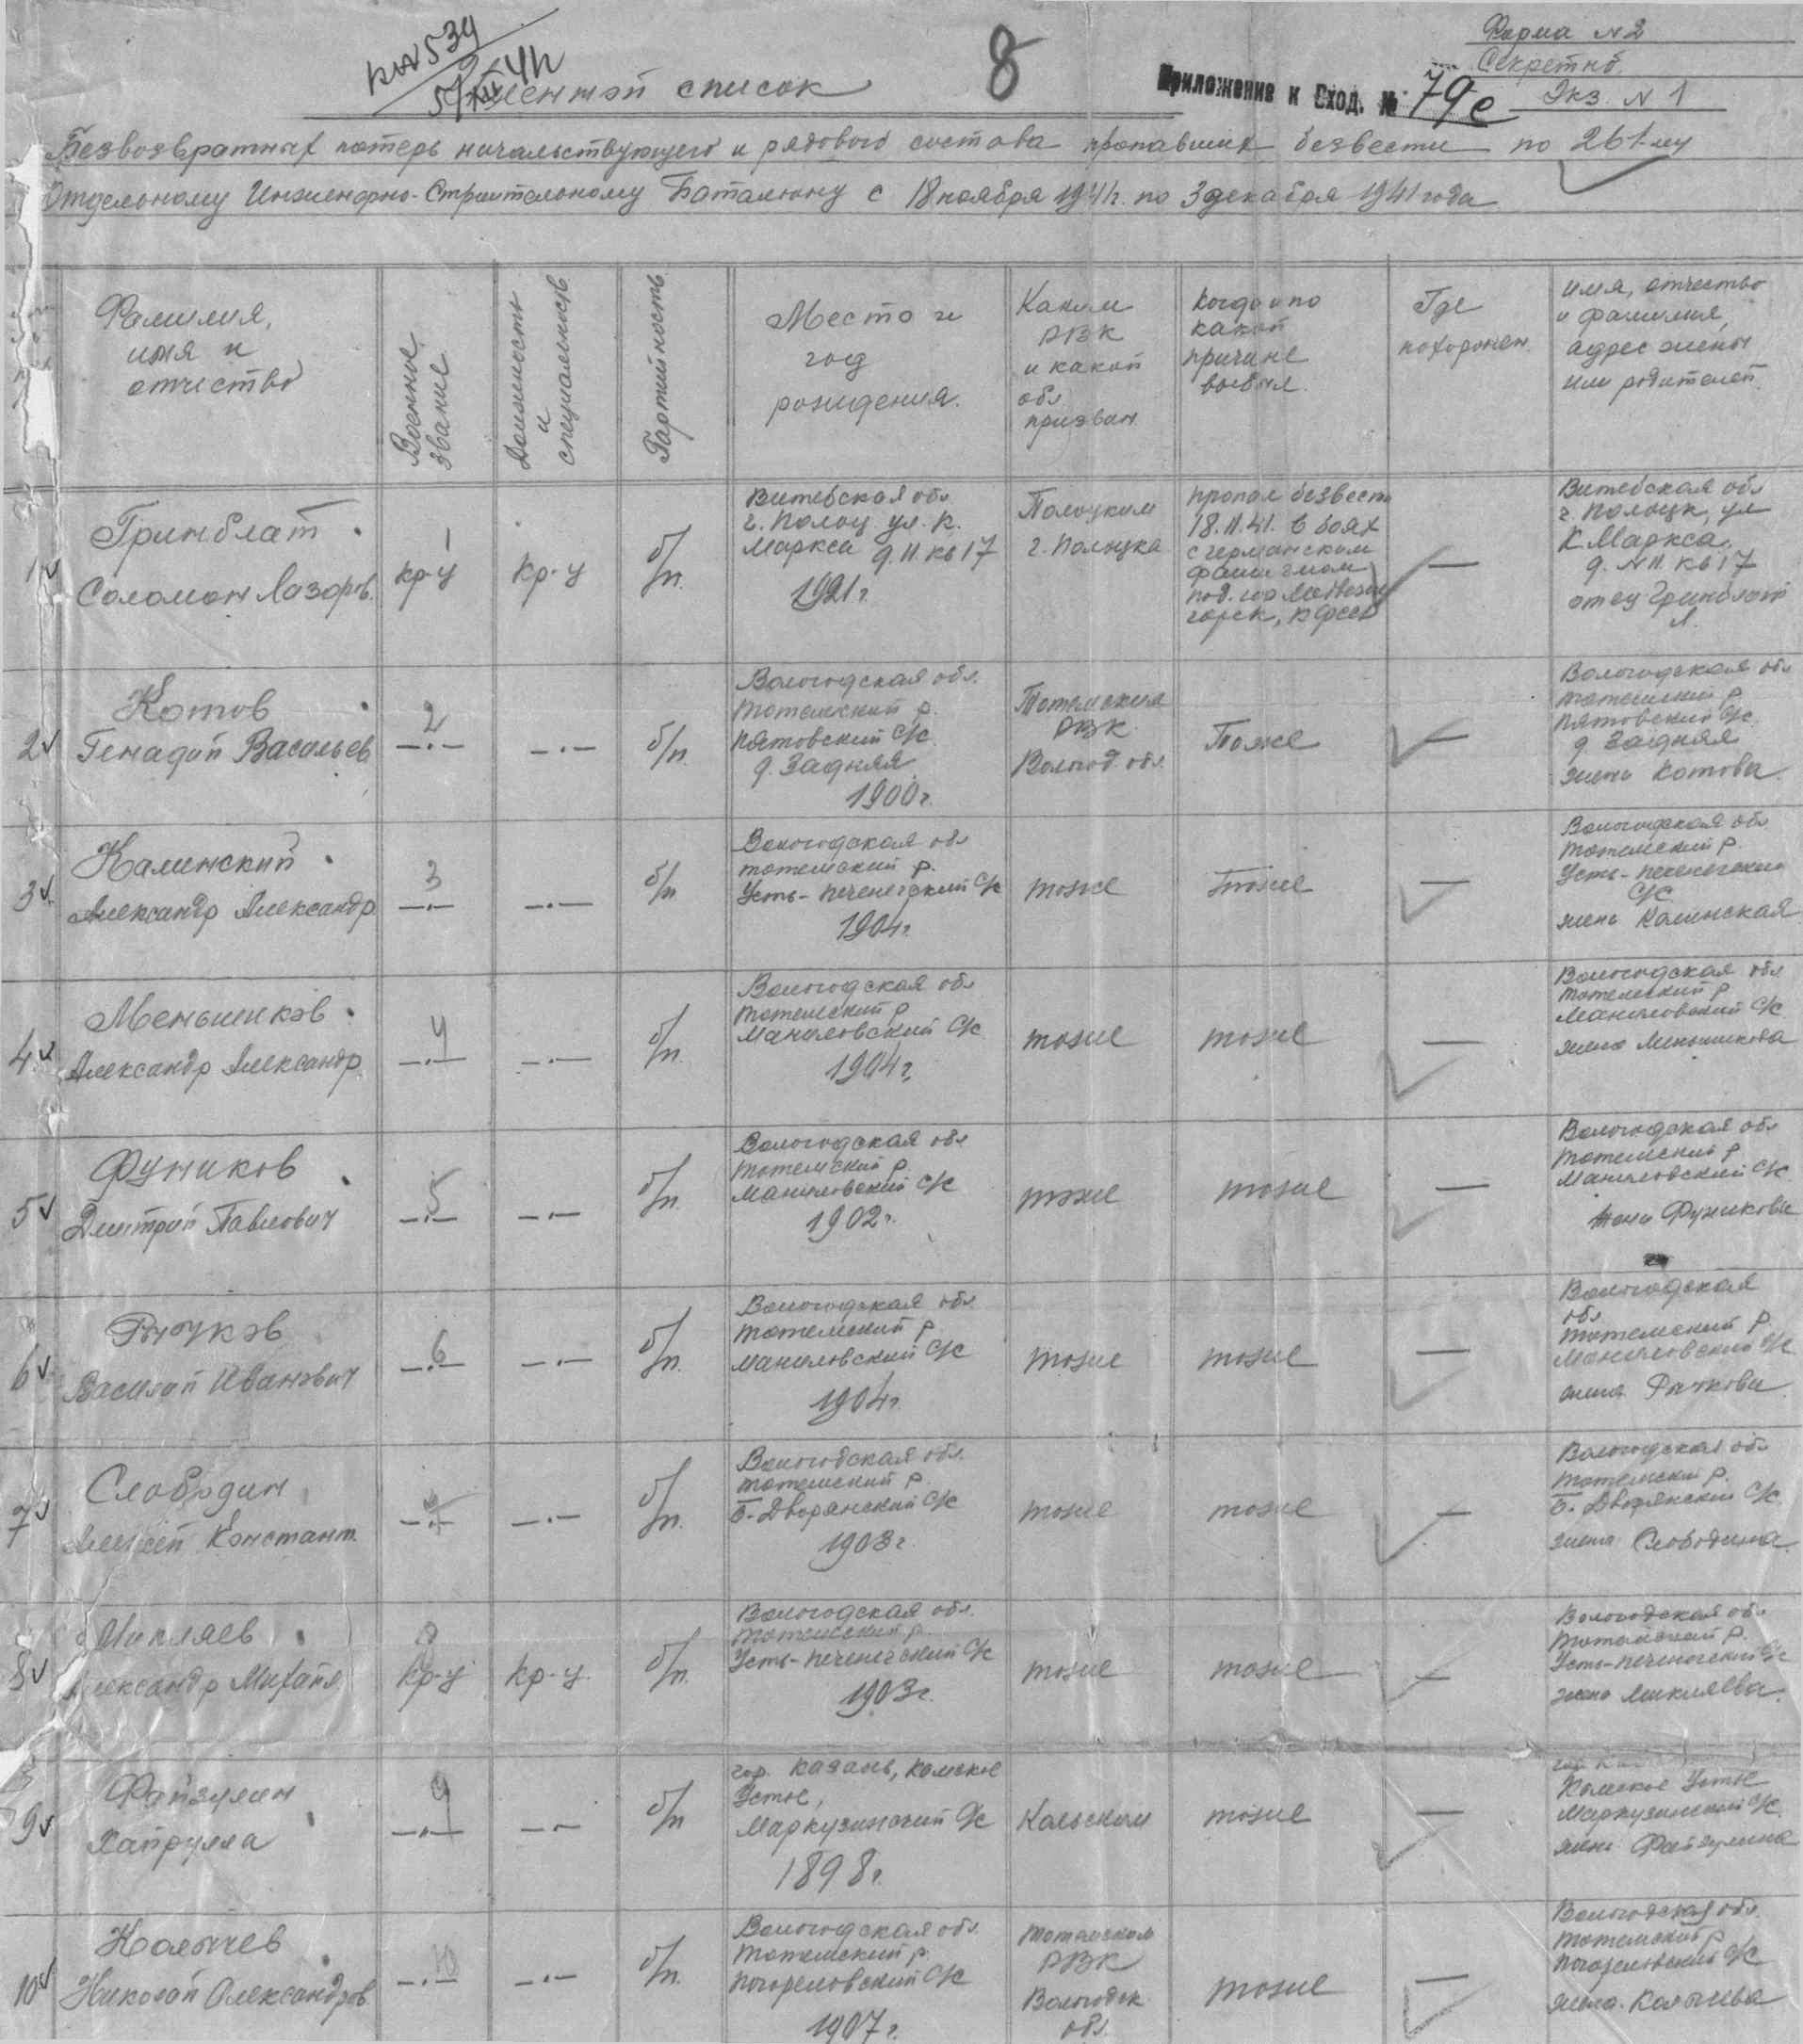 Форма N 2
Секретно.
8
Приложение к Сход. № 79с Экз. N 1
Именной список
Безвозвратных потерь начальствующего и рядового состава пропавших безвести по 261му
Отдельному Инженерно-Строительному Батальону с 18 ноября 1941г. по 3 декабря 1941 года
Фамилия,
имя и
отчество
Военное
звание
Должность
и
специальность
Партийность
Место и
год
рождения.
Каким
РВК
и какой
обл.
призван
Когда и по
какой
причине
выбыл.
Где
похоронен.
имя, отчество
и фамилия,
адрес жены
или родителей
1
Гринблат
Соломон Лазоров.
1
кр-ц
кр-ц
б/п.
Витебская обл
г. Полоц ул. К.
Маркса д. 11. кв 17
1921 г.
Полоцким
г. Полоцка
пропал безвести
18.11.41. в боях
с германским
фашизмом
под. гор Медвежье
горск, КФССР
—
Витебская обл
г. Полоцк, ул
К. Маркса.
д. N 11. кв 17
отец Гринблат
Л.
2
Котов
Генадий Васильев
2
—·—
—·—
б/п.
Вологодская обл.
тотемский р.
пятовский С/с.
д. Задняя
1900 г.
Тотемским
РВК.
Вологод. обл.
Тоже
—
Вологодская обл
тотемский р
пятовский С/с.
д. Задняя
жена Котова.
3
Калинский
Александр Александр
3
—·—
—·—
б/п
Вологодская обл
тотемский р.
Усть-печенгский С/с
1904 г.
тоже
тоже
—
Вологодская обл
тотемский р.
Усть-печенгский
С/с
жена Калинская
4
Меньшиков
Александр Александр
4
—·—
—·—
б/п.
Вологодская обл
тотемский р
Маныловский С/с.
1904 г.
тоже
тоже
—
Вологодская обл
тотемский р
Маныловский С/с
жена Меньшикова
5
Фуников
Дмитрий Павлович
5
—·—
—·—
б/п.
Вологодская обл
тотемский р.
Маныловский С/с
1902 г.
тоже
тоже
—
Вологодская обл
тотемский р
Маныловский С/с
жена Фуникова
6
Рычков
Василий Иванович
6
—·—
—·—
б/п.
Вологодская обл.
тотемский р.
Маныловский С/с
1904 г.
тоже
тоже
—
Вологодская
обл
тотемский р.
Маныловский С/с
жена Рычкова
7
Слободин
Алексей Констант.
7
—·—
—·—
б/п.
Вологодская обл.
тотемский р.
Б-Дворянский С/с
1903 г
тоже
тоже
—
Вологодская обл
тотемский р.
Б-Дворянский С/с
жена Слободина
8
Микляев
Александр Михайл
8
кр-ц
кр-ц
б/п.
Вологодская обл.
тотемский р.
Усть-печенгский С/с
1903 г.
тоже
тоже
—
Вологодская обл
тотемский р.
Усть-печенгский С/с
жена Микляева.
9
Файзулин
Хайрулла
9
—·—
—·—
б/п
гор. Казань, Камское
Устье,
Маркузинский С/с
1898 г.
Кольским
тоже
—
Камское Устье
Маркузинский С/с
жена Файзулина
10
Колычев
Николай Александров.
10
—·—
—·—
б/п.
Вологодская обл
тотемский р.
погореловский С/с
1907 г.
тотемским
РВК
Вологодск.
обл.
тоже
—
Вологодская обл.
тотемский р
погореловский С/с
жена. Колычева